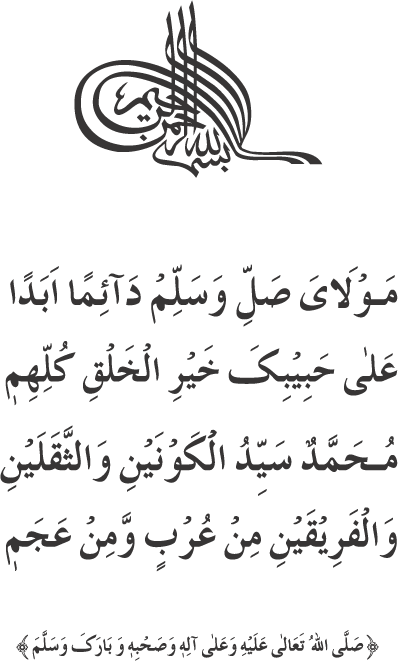 بسم الله الرحمن الرحيم
مَـوْلَایَ صَلِّ وَسَلِّمْ دَآئِمًا اَبَدًا
عَلٰی حَبِيْبِکَ خَيْرِ الْخَلْقِ کُلِّهِمٖ
مُـحَمَّدٌ سَيِّدُ الْکَوْنَيْنِ وَالثَّقَلَيْنِ
وَالْفَرِيْقَيْنِ مِنْ عُرْبٍ وَّمِنْ عَجَمٖ
﴿ صَلَّی اللهُ تَعَالٰی عَلَيْهِ وَعَلٰی آلِهٖ وَصَحْبِهٖ وَ بَارَکَ وَسَلَّمَ ﴾